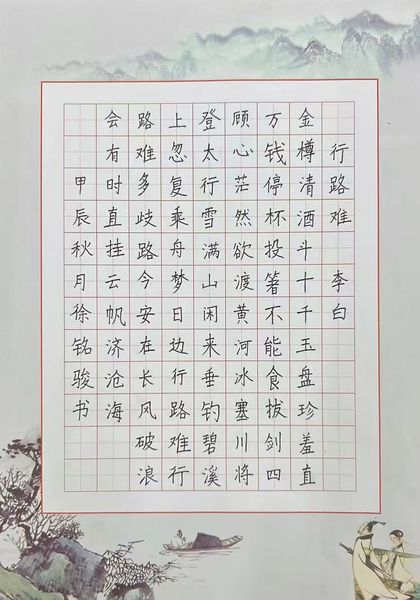 行路难 李白
金樽清酒斗十千玉盘珍羞直
万钱停杯投箸不能食拔剑四
顾心茫然欲渡黄河冰塞川将
登太行雪满山闲来垂钓碧溪
上忽复乘舟梦日边行路难行
路难多歧路今安在长风破浪
会有时直挂云帆济沧海
甲辰秋月徐铭骏书